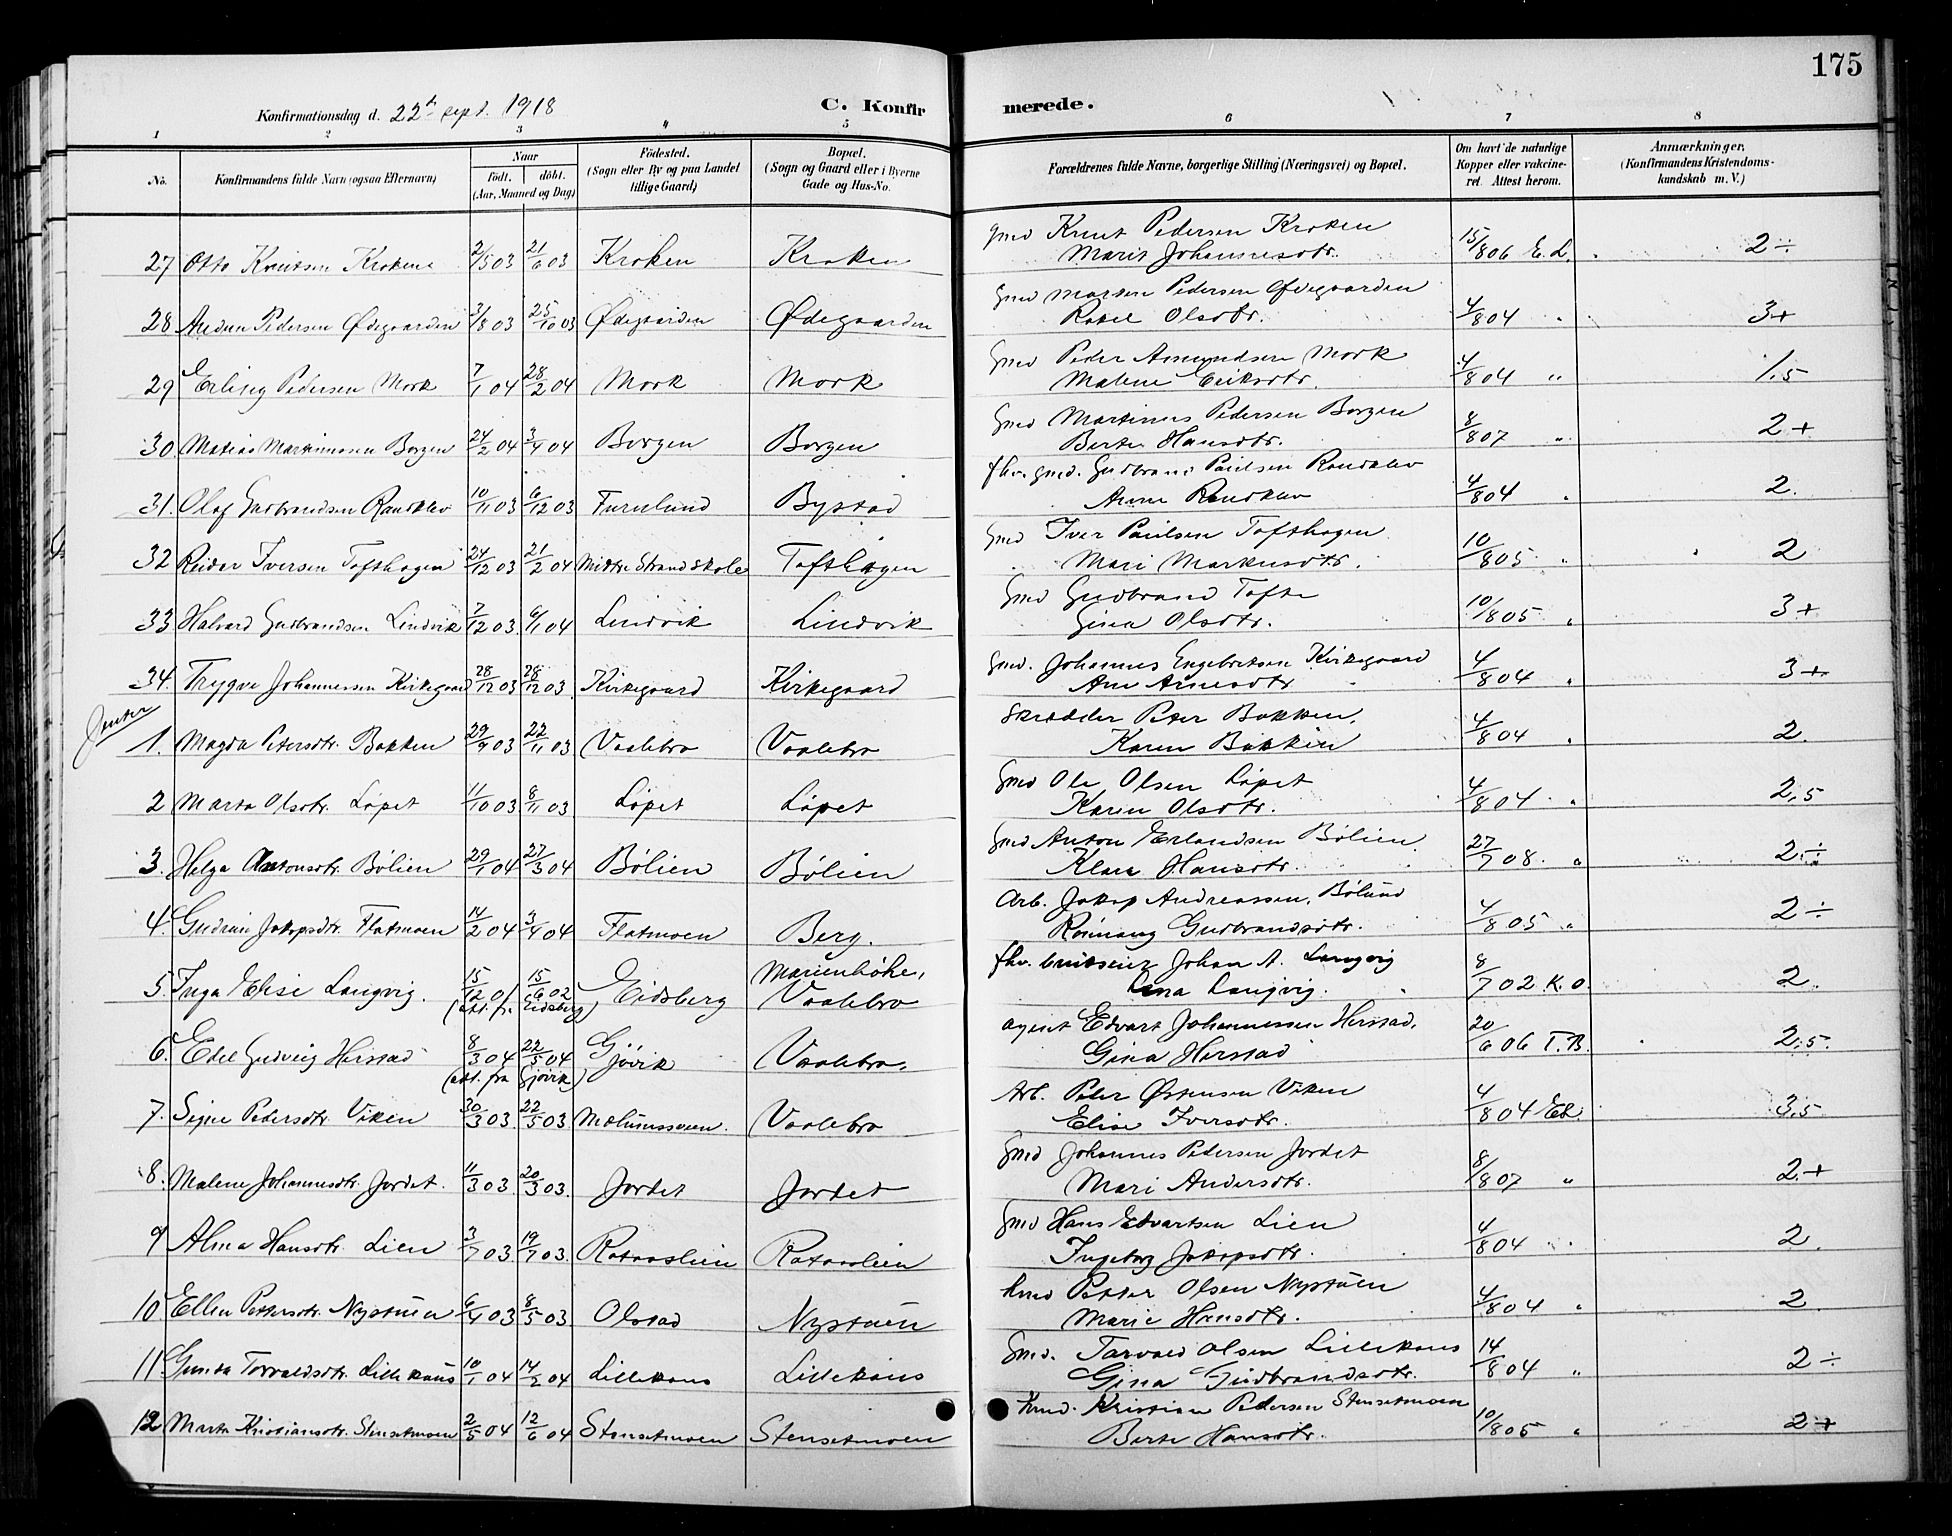 175
Konfirmationsdag d. 22d sept. 1918
C. Konfirmerede.
1 2 3 4 5 6 7 8
No. | Konfirmandens fulde Navn (ogsaa Efternavn) | Naar født. døbt. (Aar, Maaned og Dag) | Födested. (Sogn eller By og paa Landet tillige Gaard) | Bopæl. (Sogn og Gaard eller i Byerne Gade og Hus-No. | Forældrenes fulde Navne, borgerlige Stilling (Næringsvei) og Bopæl. | Om havt de naturlige Kopper eller vakcineret. Attest herom. | Anmærkninger. (Konfirmandens Kristendomskundskab m. V.)
27 Otto Knutsen Krokene 2/5 03 21/6 03 Kroken Kroken Gmd Knut Pedersen Kroken Marit Johannesdtr. 15/8 06 E.L. 2÷
28 Pedersen Ødegaarden 3/8 03 25/10 03 Ødegaarden Ødegaarden Gmd Morten Pedersen Ødegaarden Olsdtr. 4/8 04 " 3+
29 Erling Pedersen Mork 7/1 04 28/2 04 Mork Mork Gmd Peder Amundsen Mork Malene Eriksdtr. 4/8 04 " 1,5
30 Matias Martinusen Borgen 24/2 04 3/4 04 Borgen Borgen Gmd Martinus Pedersen Borgen Berte Hansdtr. 8/8 07 " 2+
31. Olaf Gudbrandsen Randklev 10/11 03 6/12 03 Furulund Bystad fhv. gmd. Gudbrand Paulsen Randklev Anne Randklev 4/8 04 " 2.
32 Reidar Iversen Tofthagen 24/12 03 21/2 04 Midtre Strand skole Tofthagen Gmd Iver Paulsen Tofthagen Mari Markusdtr. 10/8 05 " 2
33 Halvard Gudbrandsen Lindvik 7/12 03. 6/1 04 Lindvik Lindvik Gmd Gudbrand Tofte Gina Olsdtr. 10/8 05 " 3+
34. Trygve Johannessen Kirkegaard 28/12 03 28/12 03. Kirkegaard Kirkegaard Gmd. Johannes Engebretsen Kirkegaard Ane Arnesdtr 4/8 04 " 3+
Jenter
1. Magda Petersdtr. Bakken 29/9 03 22/11 03 Vaalebro Vaalebro Skrædder Peter Bakken, Karen Bakken 4/8 04 " 2.
2 Marta Olsdtr. Løpet 11/10 03 8/11 03 Løpet Løpet Gmd Ole Olsen Løpet Karen Olsdtr. 4/8 04 " 2,5
3. Helga Antonsdtr. Bølien 29/1 04 27/3 04 Bølien Bølien Gmd Anton Erlandsen Bølien. Klara Hansdtr. 27/7 08. " 2÷
4. Gudrun Jakopsdtr. Flatmoen 14/2 04 3/4 04 Flatmoen Berg. Arb. Jakop Andreassen, Bølund Rønnaug Gudbrandsdtr. 4/8 05 " 2÷
5. Inga Elise Langvig. 15/12 01 15/6 02 (att. fr. Eidsberg) Eidsberg Marienhøhe, Vaalebro fhv. Johan A. Langvig Lena Langvig. 8/7 02 K.O. 2.
6. Edel Gudveig Herstad 8/3 04 22/5 04 (att. fra Gjøvik) Gjøvik Vaalebro. Agent Edvart Johannessen Herstad, Gina Herstad 20/6 06 T.B. 2,5.
7. Signe Pedersdtr Viken 30/3 03 22/5 03 Vaalebro Arb. Peder Østensen Viken Elise Iversdtr. 4/8 04 EL 3,5
8. Malene Johannesdtr. Jordet. 11/3 03. 20/3 03. Jordet Jordet Gmd Johannes Pedersen Jordet Mari Andersdtr. 8/8 07 " 2+
9 Alma Hansdtr. Lien 3/7 03. 19/7 03. Rotaaslien Rotaaslien Gmd Hans Edvartsen Lien Ingeborg Jakopsdtr. 4/8 04 " 2.
10 Ellen Pettersdtr. Nystuen 6/4 03 8/5 03 Olstad Nystuen Kmd Petter Olsen Nystuen Marie Hansdtr. 4/8 04 " 2.
11 Gunda Torvaldsdtr. Lillekaus 10/1 04 14/2 04 Lillekaus Lillekaus Gmd. Tarvald Olsen Lillekaus Gina Gudbrandsdtr. 14/8 04 " 2÷
12 Marta Kristiansdtr. Stensetmoen 2/5 04 12/6 04 Stensetmoen Stensetmoen Kmd. Kristian Pedersen Stensetmoen Berte Hansdtr. 10/8 05 " 2+